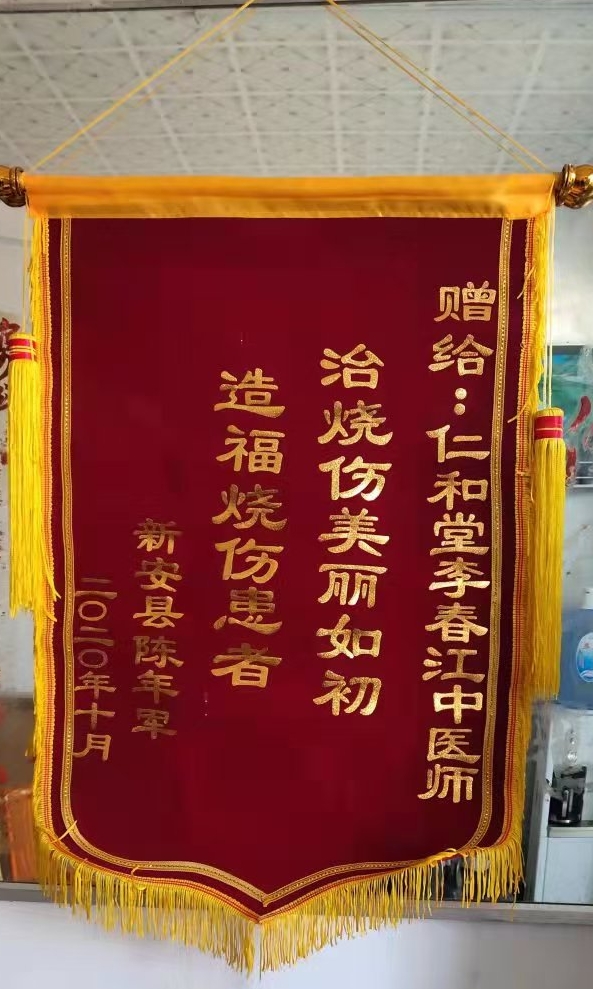 赠给：仁和堂李春江中医师
治烧伤美丽如初
造福烧伤患者
新安县陈年军
二〇二〇年十月